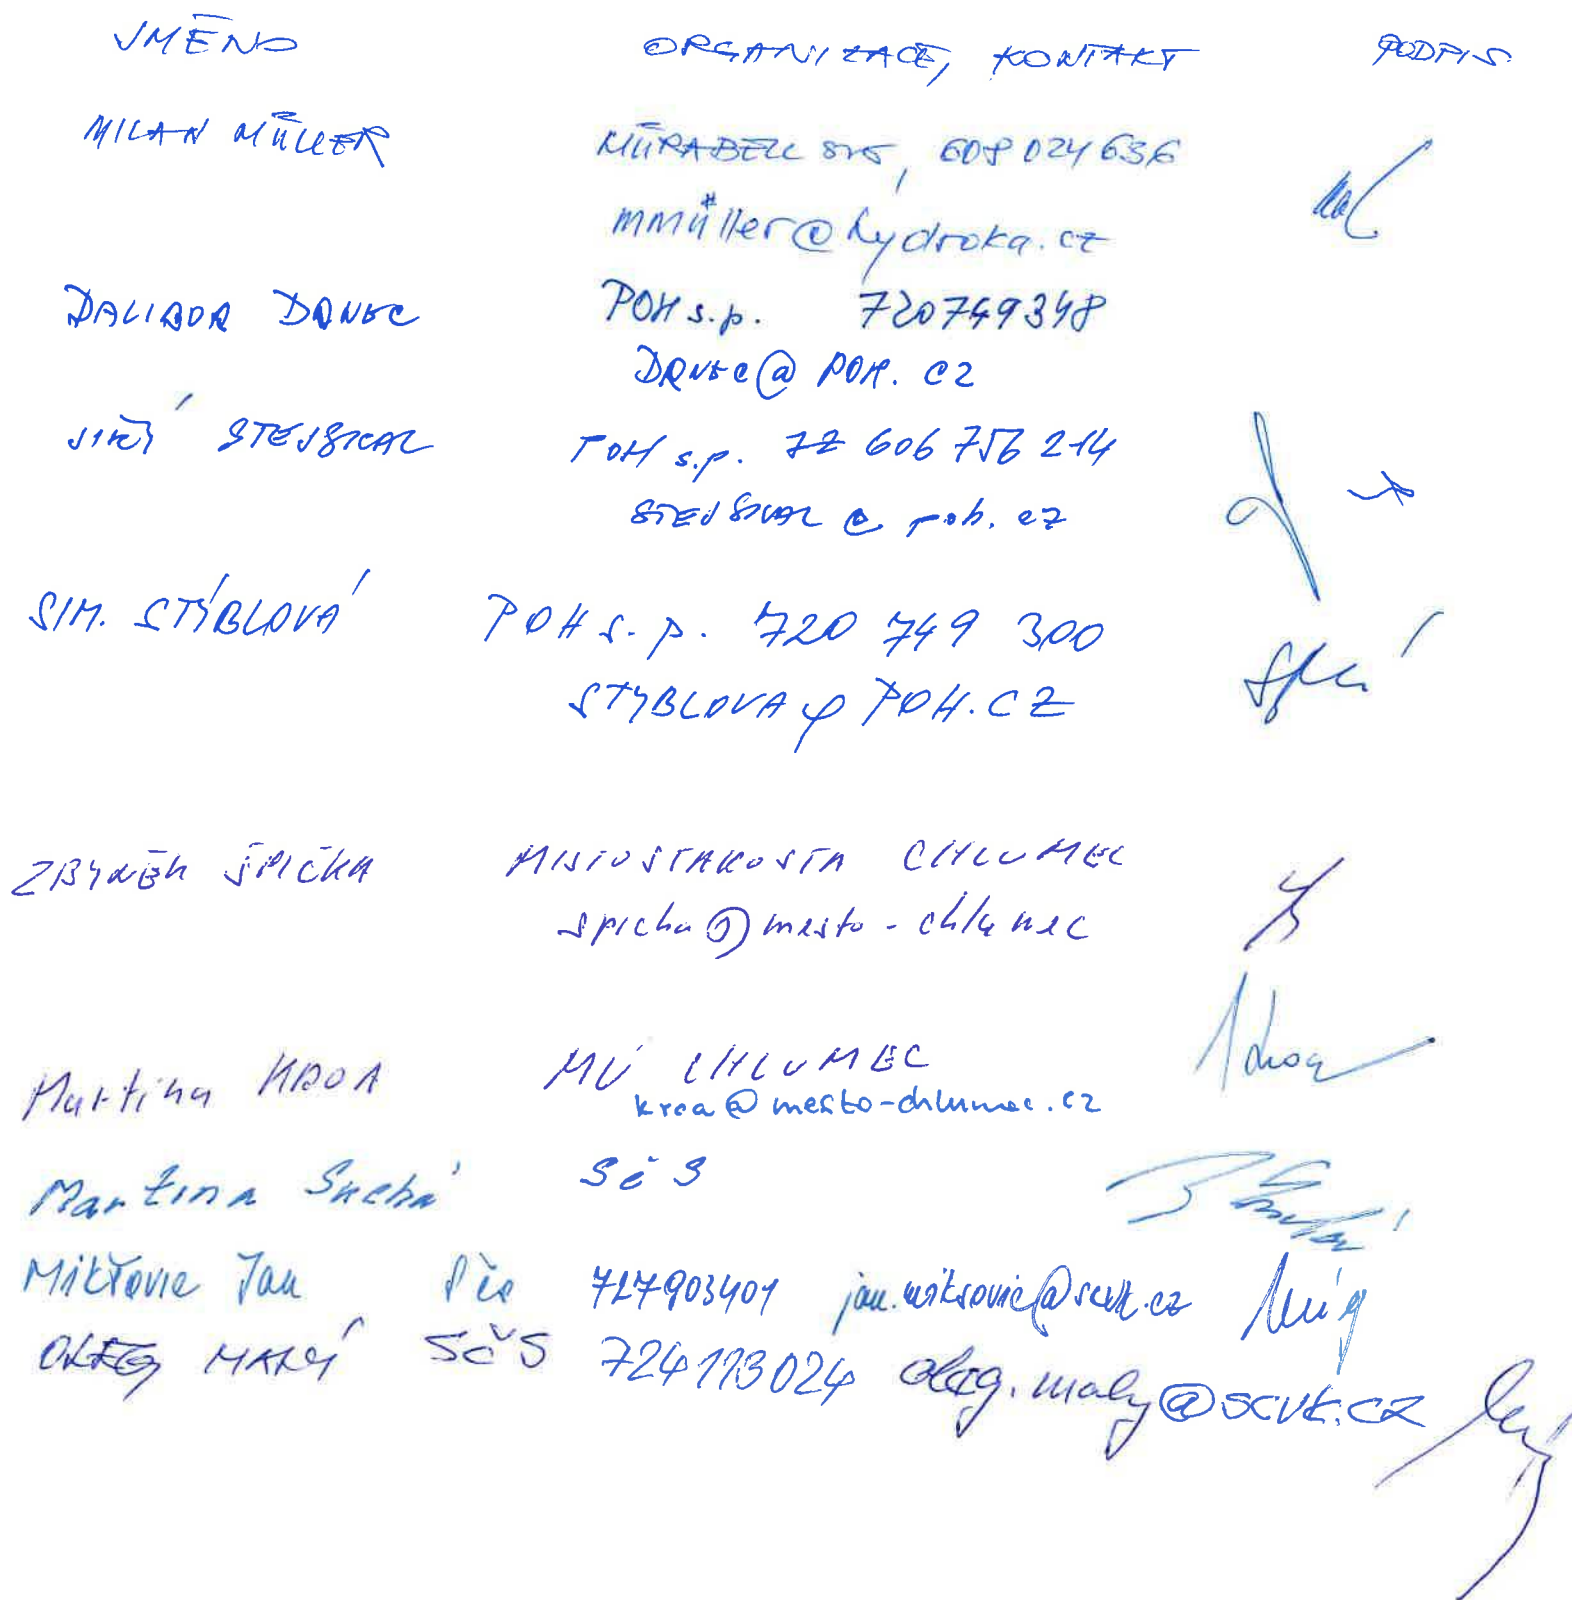 JMÉNO ORGANIZACE, KONTAKT PODPIS
MILAN MÜLLER MÜRABELL sro, 608 024 636
mmüller@hydroka.cz
DALIBOR DRNEC POH s.p. 720749348
DRNEC@POH.CZ
JIŘÍ STEJSKAL POH s.p. 606 756 214
STEJSKAL@poh.cz
SIM. STÝBLOVÁ POH s.p. 720 749 300
STYBLOVA@POH.CZ
ZBYNĚK ŠPIČKA MÍSTOSTAROSTA CHLUMEC
spicka@mesto-chlumec
Martina KROA MÚ CHLUMEC
kroa@mesto-chlumec.cz
Martina Suchá SČS
Mikšovic Jan SČS 727903401 jan.miksovic@scvk.cz
OLEG MALÝ SČS 724113024 oleg.maly@scvk.cz